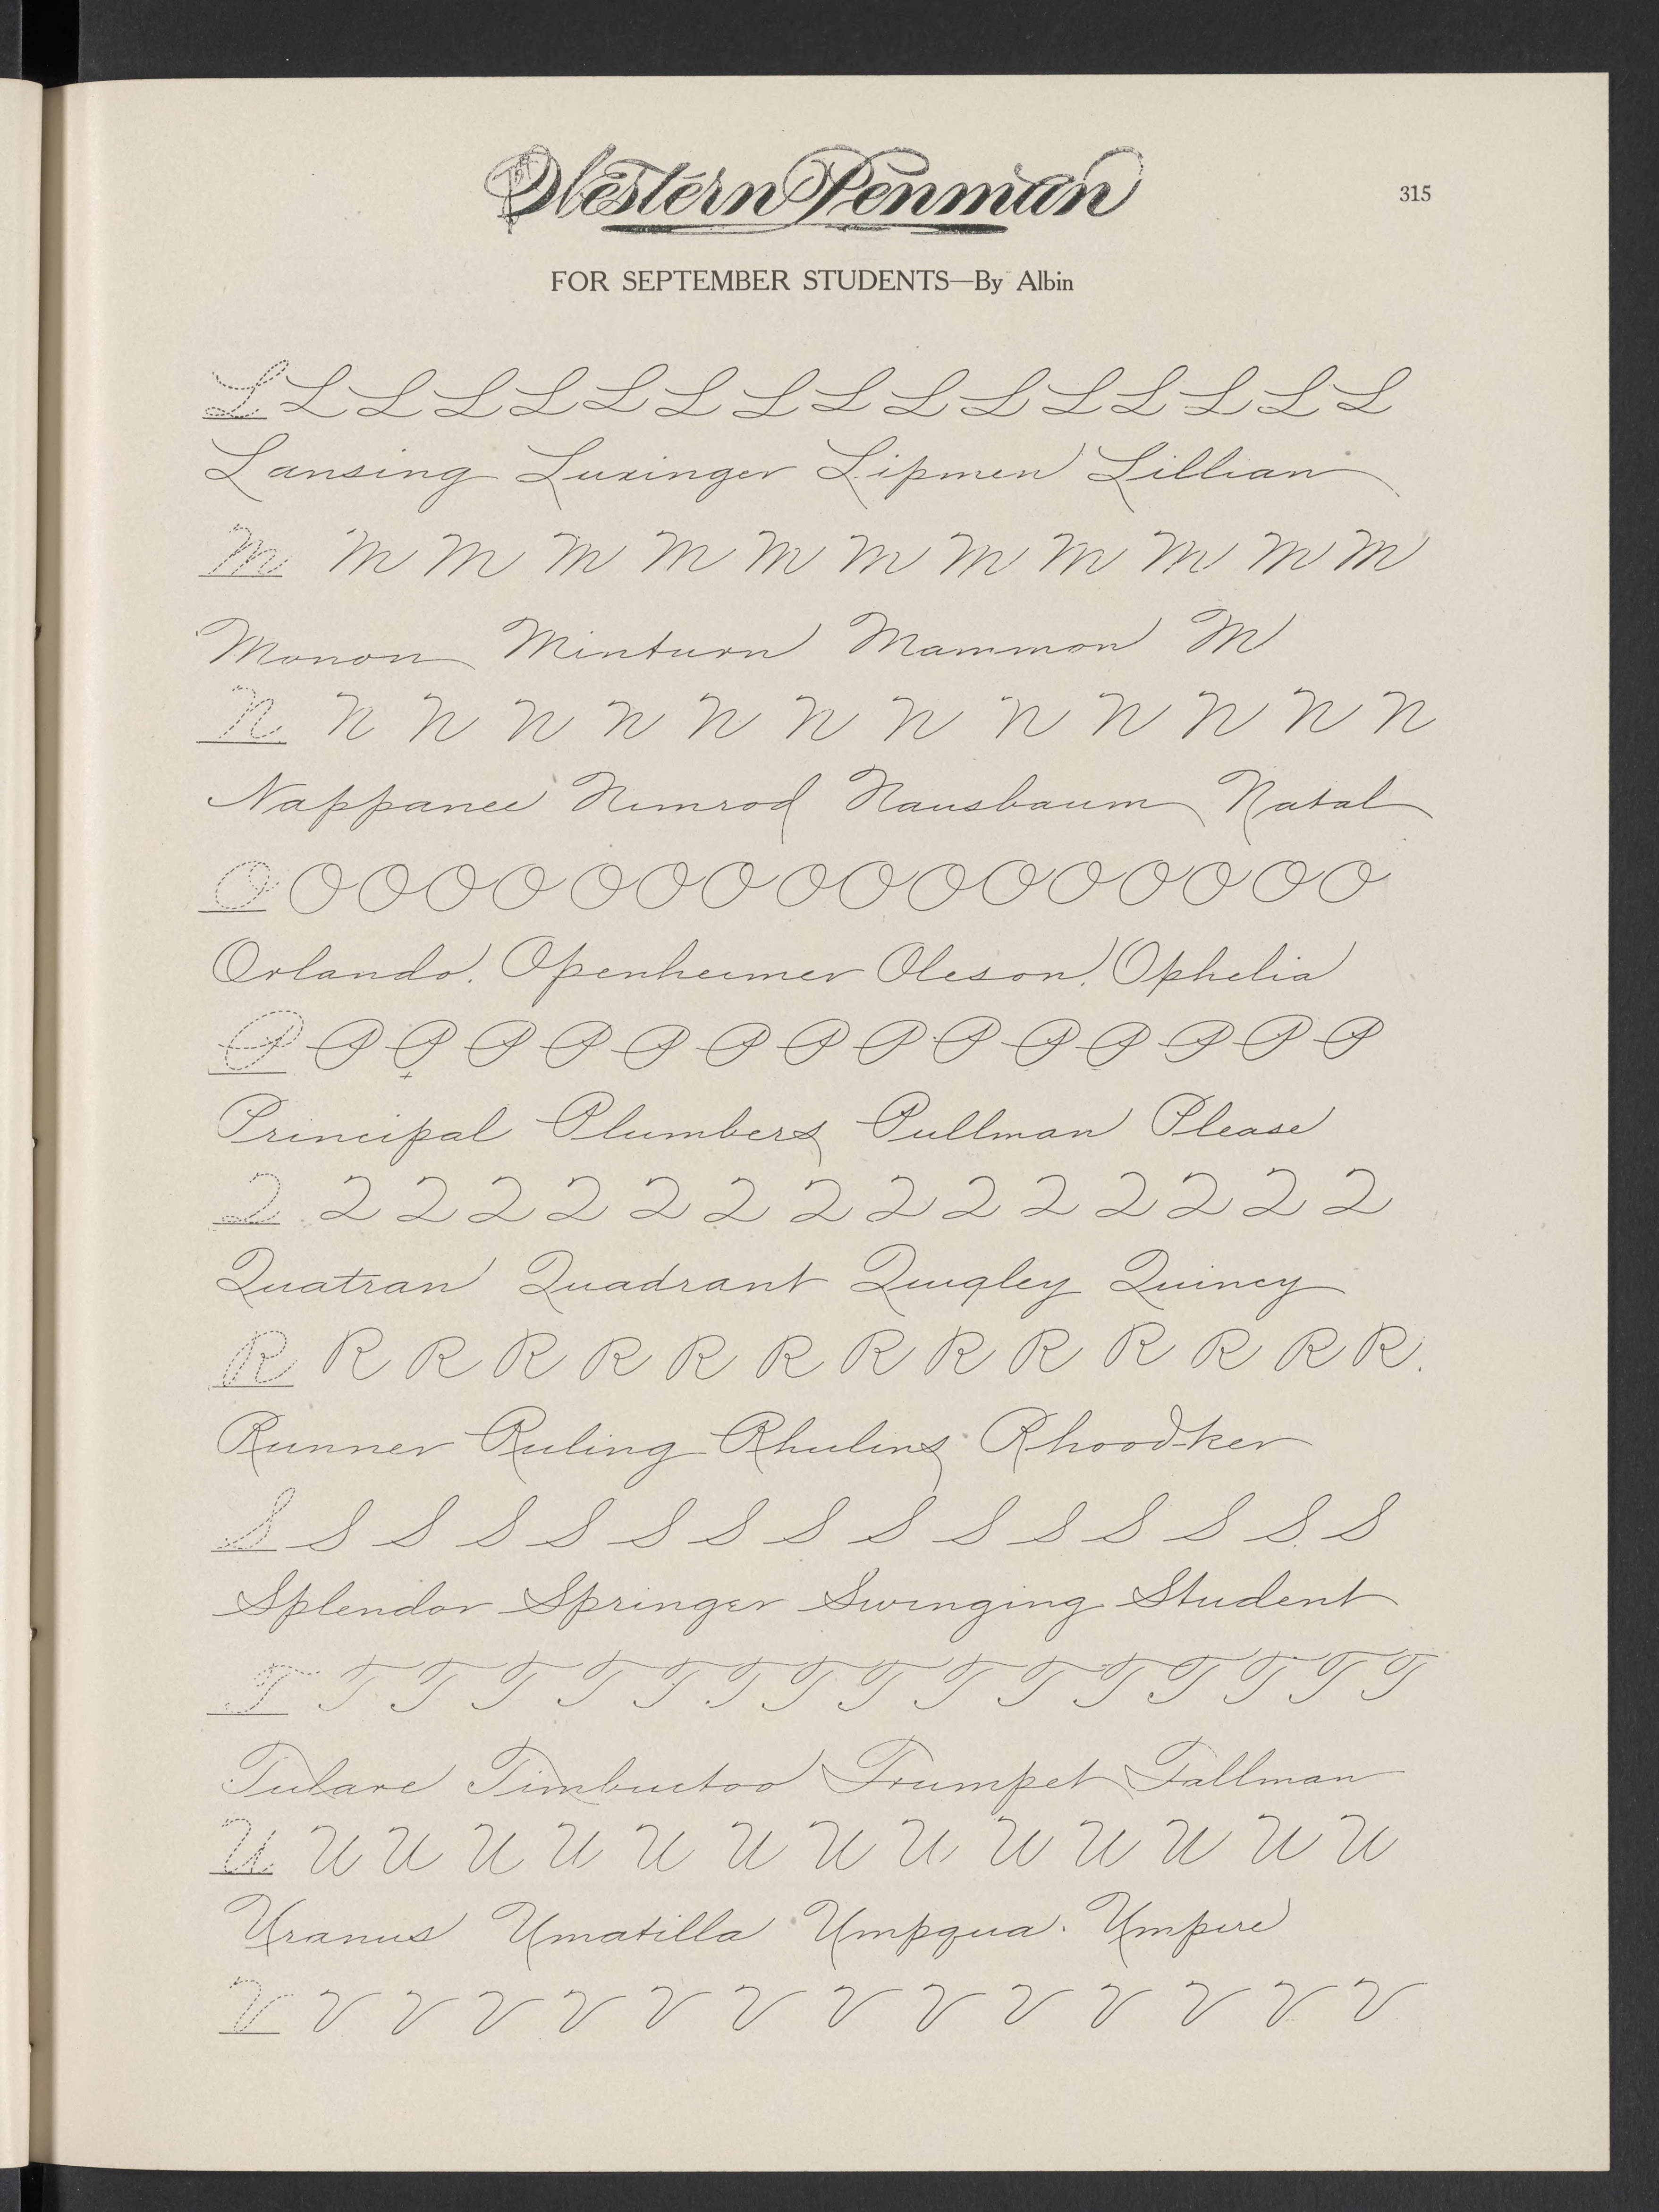 The Western Penman
315
FOR SEPTEMBER STUDENTS—By Albin
L L L L L L L L L L L L L L L L
Lansing Luxinger Lipmen Lillian
M M M M M M M M M M M M
Monon Minturn Mammon M
N N N N N N N N N N N N N
Nappanee Nimrod Nausbaum Natal
O O O O O O O O O O O O O O O O O
Orlando. Openheimer Oleson. Ophelia
P P P P P P P P P P P P P P P
Principal Plumbers Pullman Please
Q Q Q Q Q Q Q Q Q Q Q Q Q Q Q
Quatran Quadrant Quigley Quincy
R R R R R R R R R R R R R R.
Runner Ruling Rhulins Rhoodker
S S S S S S S S S S S S S S S
Splendor Springer Swinging Student
T T T T T T T T T T T T T T T
Tulare Timbuctoo Trumpet Tallman
U U U U U U U U U U U U U U
Uranus Umatilla Umpqua. Umpire
V V V V V V V V V V V V V V